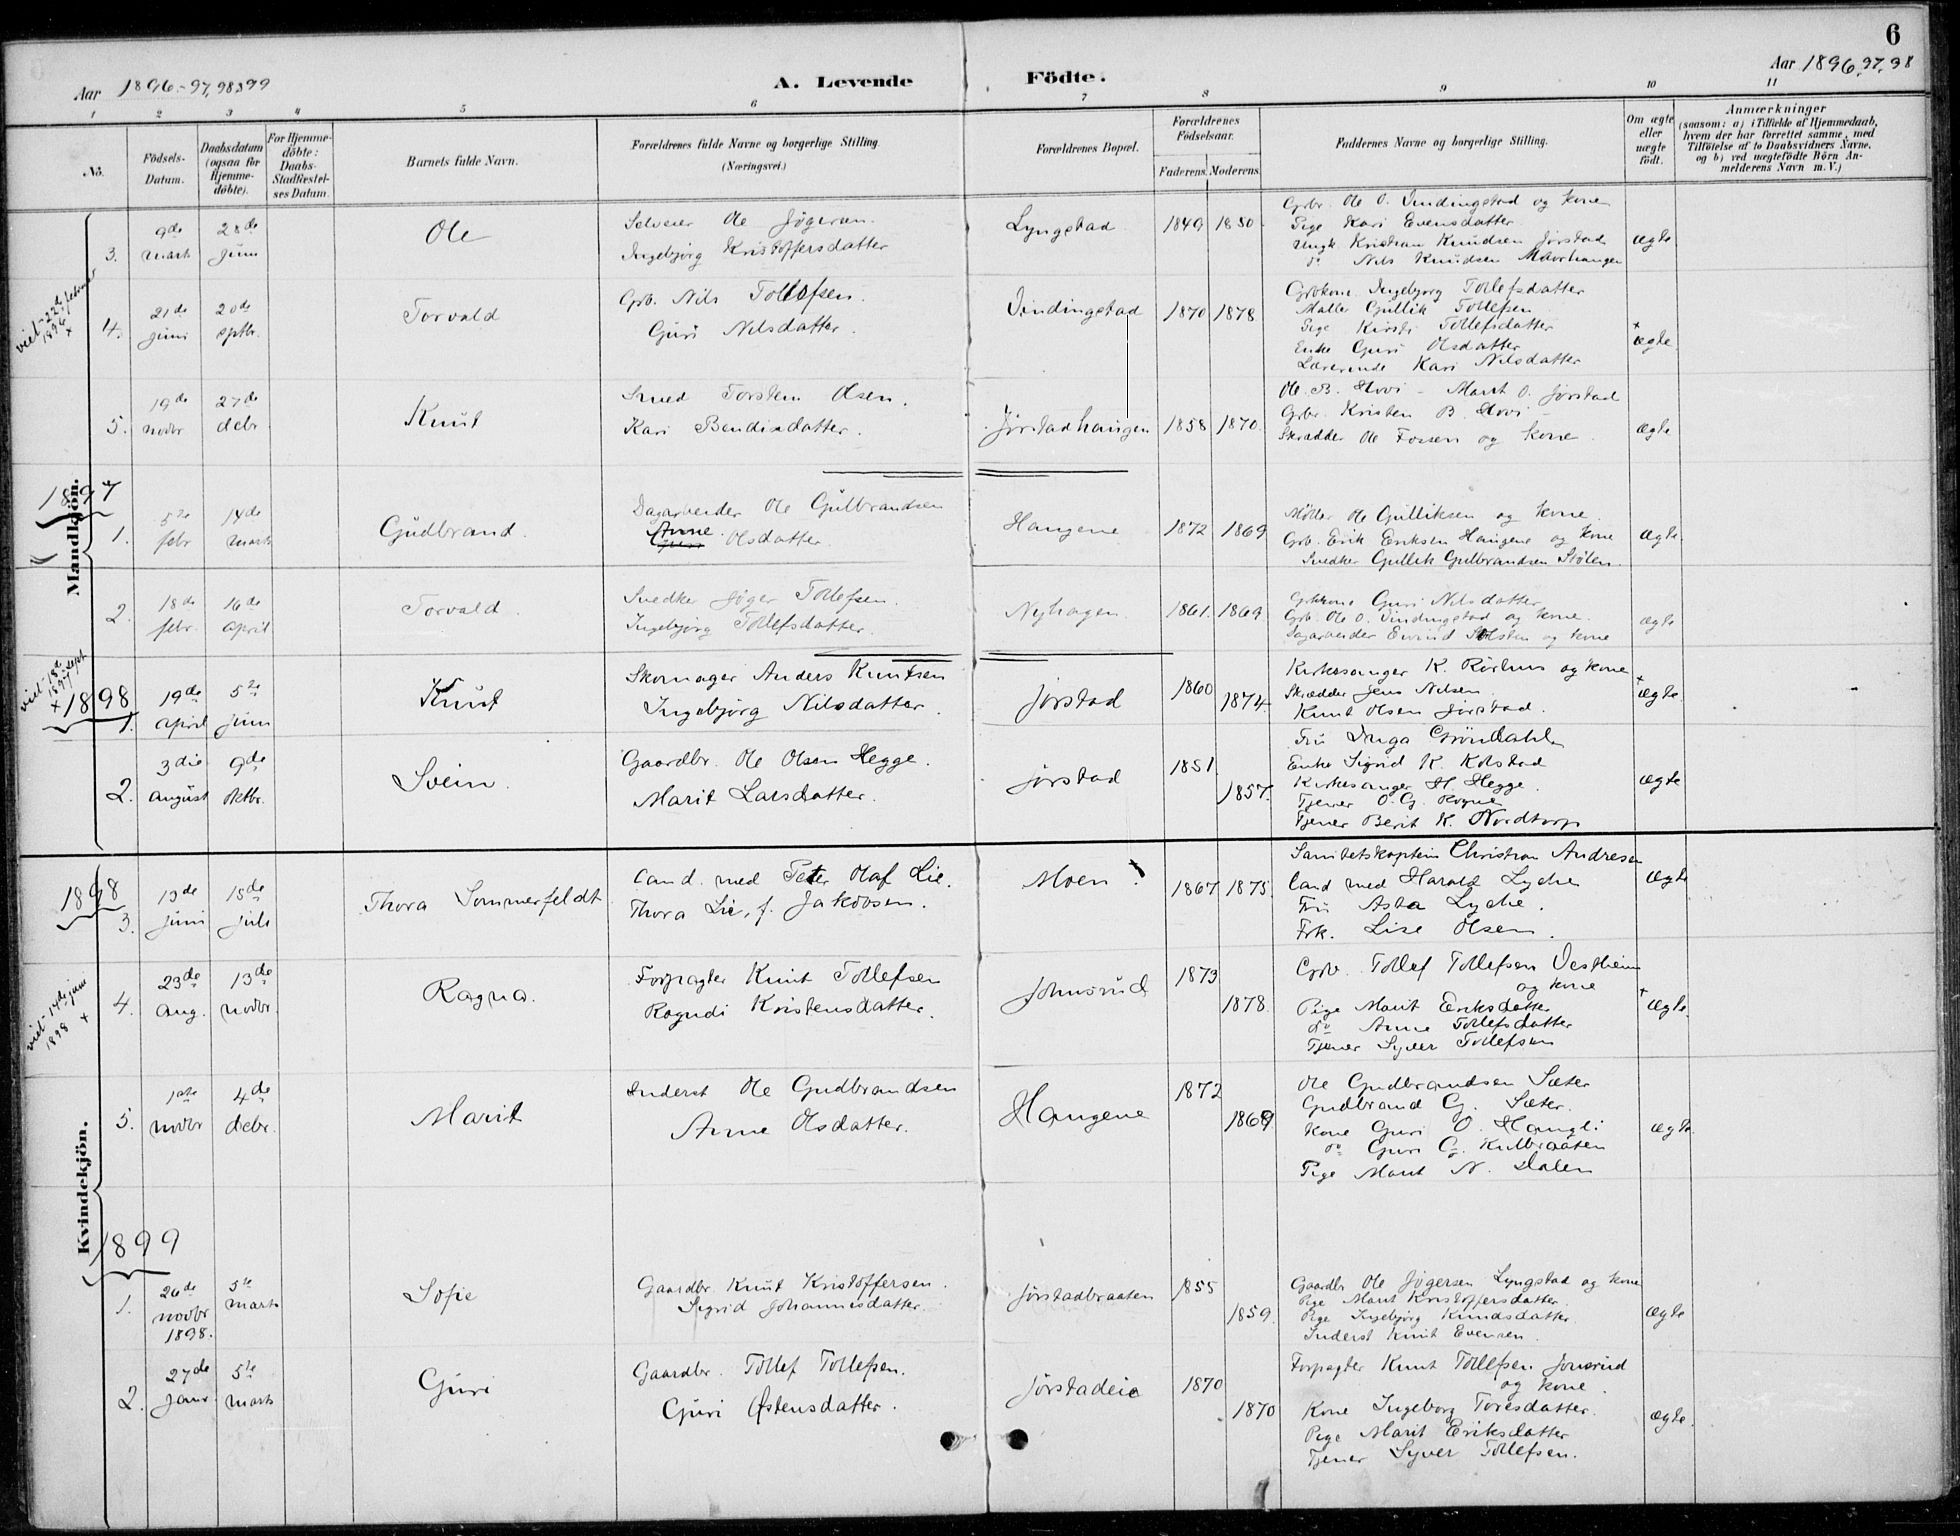 6
Aar 1896.-97,98,99
A. Levende Födte.
Aar 1896,97,98
1 2 3 4 5 6 7 8 9 10 11
No.
Födsels-Datum.
Daabsdatum (ogsaa for Hjemme-döbte).
For Hjemme-döbte: Daabs-Stadfæstel-ses Datum.
Barnets fulde Navn.
Forældrenes fulde Navne og borgerlige Stilling.
(Næringsvei.)
Forældrenes Bopæl.
Forældrenes Födselsaar.
Faderens. Moderens.
Faddernes Navne og borgerlige Stilling.
Om ægte eller uægte födt.
Anmærkninger
(saasom: a) i Tilfælde af Hjemmedaab,
hvem der har forrettet samme, med
Tilföielse af to Daabsvidners Navne,
og b) ved uægtefödte Börn An-
melderens Navn m. V.)
Mandkjön.
3. 9de marts 28de juni
Ole
Selveier Ole Jøgersen.
Ingebjørg Kristoffersdatter
Lyngstad 1849 1850
Grbr. Ole O. Vindingstad og kone
Pige Kari Evensdatter
Ungk. Kristian Knudsen Jørstad
do Nils Knudsen Maurhaugen
ægte
viet 22de februar 1896 +
4. 21de juni 20de septbr.
Torvald
Grb. Nils Tollefsen.
Guri Nilsdatter.
Vindingstad 1870 1878
Grbkone Ingebjørg Tollefsdatter
Maler Gullik Tollefsen
Pige Kirsti Tollefsdatter
Enke Guri Olsdatter
Lærerinde Kari Nilsdatter
+ ægte
5. 19de novbr 27de debr.
Knut
Smed Torsten Olsen.
Kari Bendixdatter.
Jørstadhaugen 1858 1870
Ole B. Hovi - Marit O. Jørstad
Grbr. Kristen B. Hovi -
Skrædder Ole Fossen og kone
ægte
1897
1. 5te febr 14de marts
Gudbrand.
Dagarbeider Ole Gulbrandsen
Anne Olsdatter.
Haugene 1872 1869
Møller Ole Gulliksen og kone.
Grb. Erik Eriksen Haugene og kone
Snedker Gullik Gulbrandsen Stølen.
ægte.
2. 18de febr. 16de april
Torvald.
Snedker Jøger Tollefsen.
Ingebjørg Tollefsdatter.
Nyhagen 1861. 1869
Grbkone Guri Nilsdatter
Grb. Ole O. Vindingstad og kone.
Dagarbeider Eivind Stølsten og kone
ægte
viet 18de sept 1897 +
1898
1. 19de april 5te juni
Knut
Skomager Anders Knutsen
Ingebjørg Nilsdatter.
Jørstad 1860 1874.
Kirkesanger K. Rørhus og kone
Skrædder Jens Nilsen.
Knut Olsen Jørstad.
+ ægte.
2. 3die august 9de oktbr.
Svein.
Gaardbr. Ole Olsen Hegge.
Marit Larsdatter.
Jørstad 1851. 1857.
Fru Inga Grøndahl
Enke Sigrid K. Kolstad
Kirkesanger H. Hegge.
Tjener O. G. Rogne
Tjener Berit K. Nordtorp
ægte
Kvindekjön.
1898
3. 13de juni 15de juli
Thora Sommerfeldt
Cand. med Peter Olaf Lie.
Thora Lie, f. Jakobsen.
Moen. 1867 1875
Sanitetskaptein Christian Andresen
Cand med Harald Lyche
Fru Asta Lyche.
Frk. Lise Olsen.
ægte
viet 14de juni 1898 +
4. 23de aug. 13de novbr.
Ragna.
Forpagter Knut Tollefsen
Ragndi Kristensdatter.
Johnsrud 1873 1878
Grbr. Tollef Tollefsen Vestheim
og kone
Pige Marit Eriksdatter
do Anne Tollefsdatter
Tjener Syver Tollefsen
+ ægte.
5. 1ste novbr 4de debr.
Marit
Inderst Ole Gudbrandsen
Anne Olsdatter.
Haugene 1872 1869
Ole Gudbrandsen Sæter
Gudbrand G. Sæter.
Kone Guri O. Haugli
do Guri G. Kulbraaten
Pige Marit N. Dalen
ægte.
1899
1. 26de novbr 1898. 5te marts
Sofie
Gaardbr. Knut Kristoffersen.
Sigrid Johannesdatter.
Jørstadbraaten 1855 1859.
Gaardbr Ole Jøgersen Lyngstad og kone
Pige Marit Kristoffersdatter
Pige Ingebjørg Knudsdatter
Inderst Knut Evensen.
ægte
2. 27de janr. 5te marts
Guri
Gaardbr. Tollef Tollefsen.
Guri Østensdatter.
Jørstadeie 1870 1870
Forpagter Knut Tollefsen Jonsrud
og kone.
Kone Ingeborg Toresdatter.
Pige Marit Eriksdatter
Tjener Syver Tollefsen.
ægte.